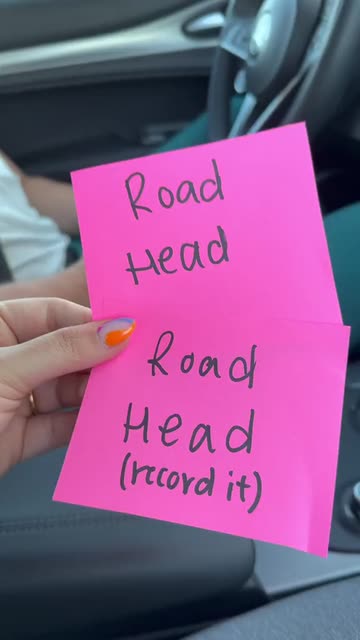 Road
Head
Road
Head
(record it)